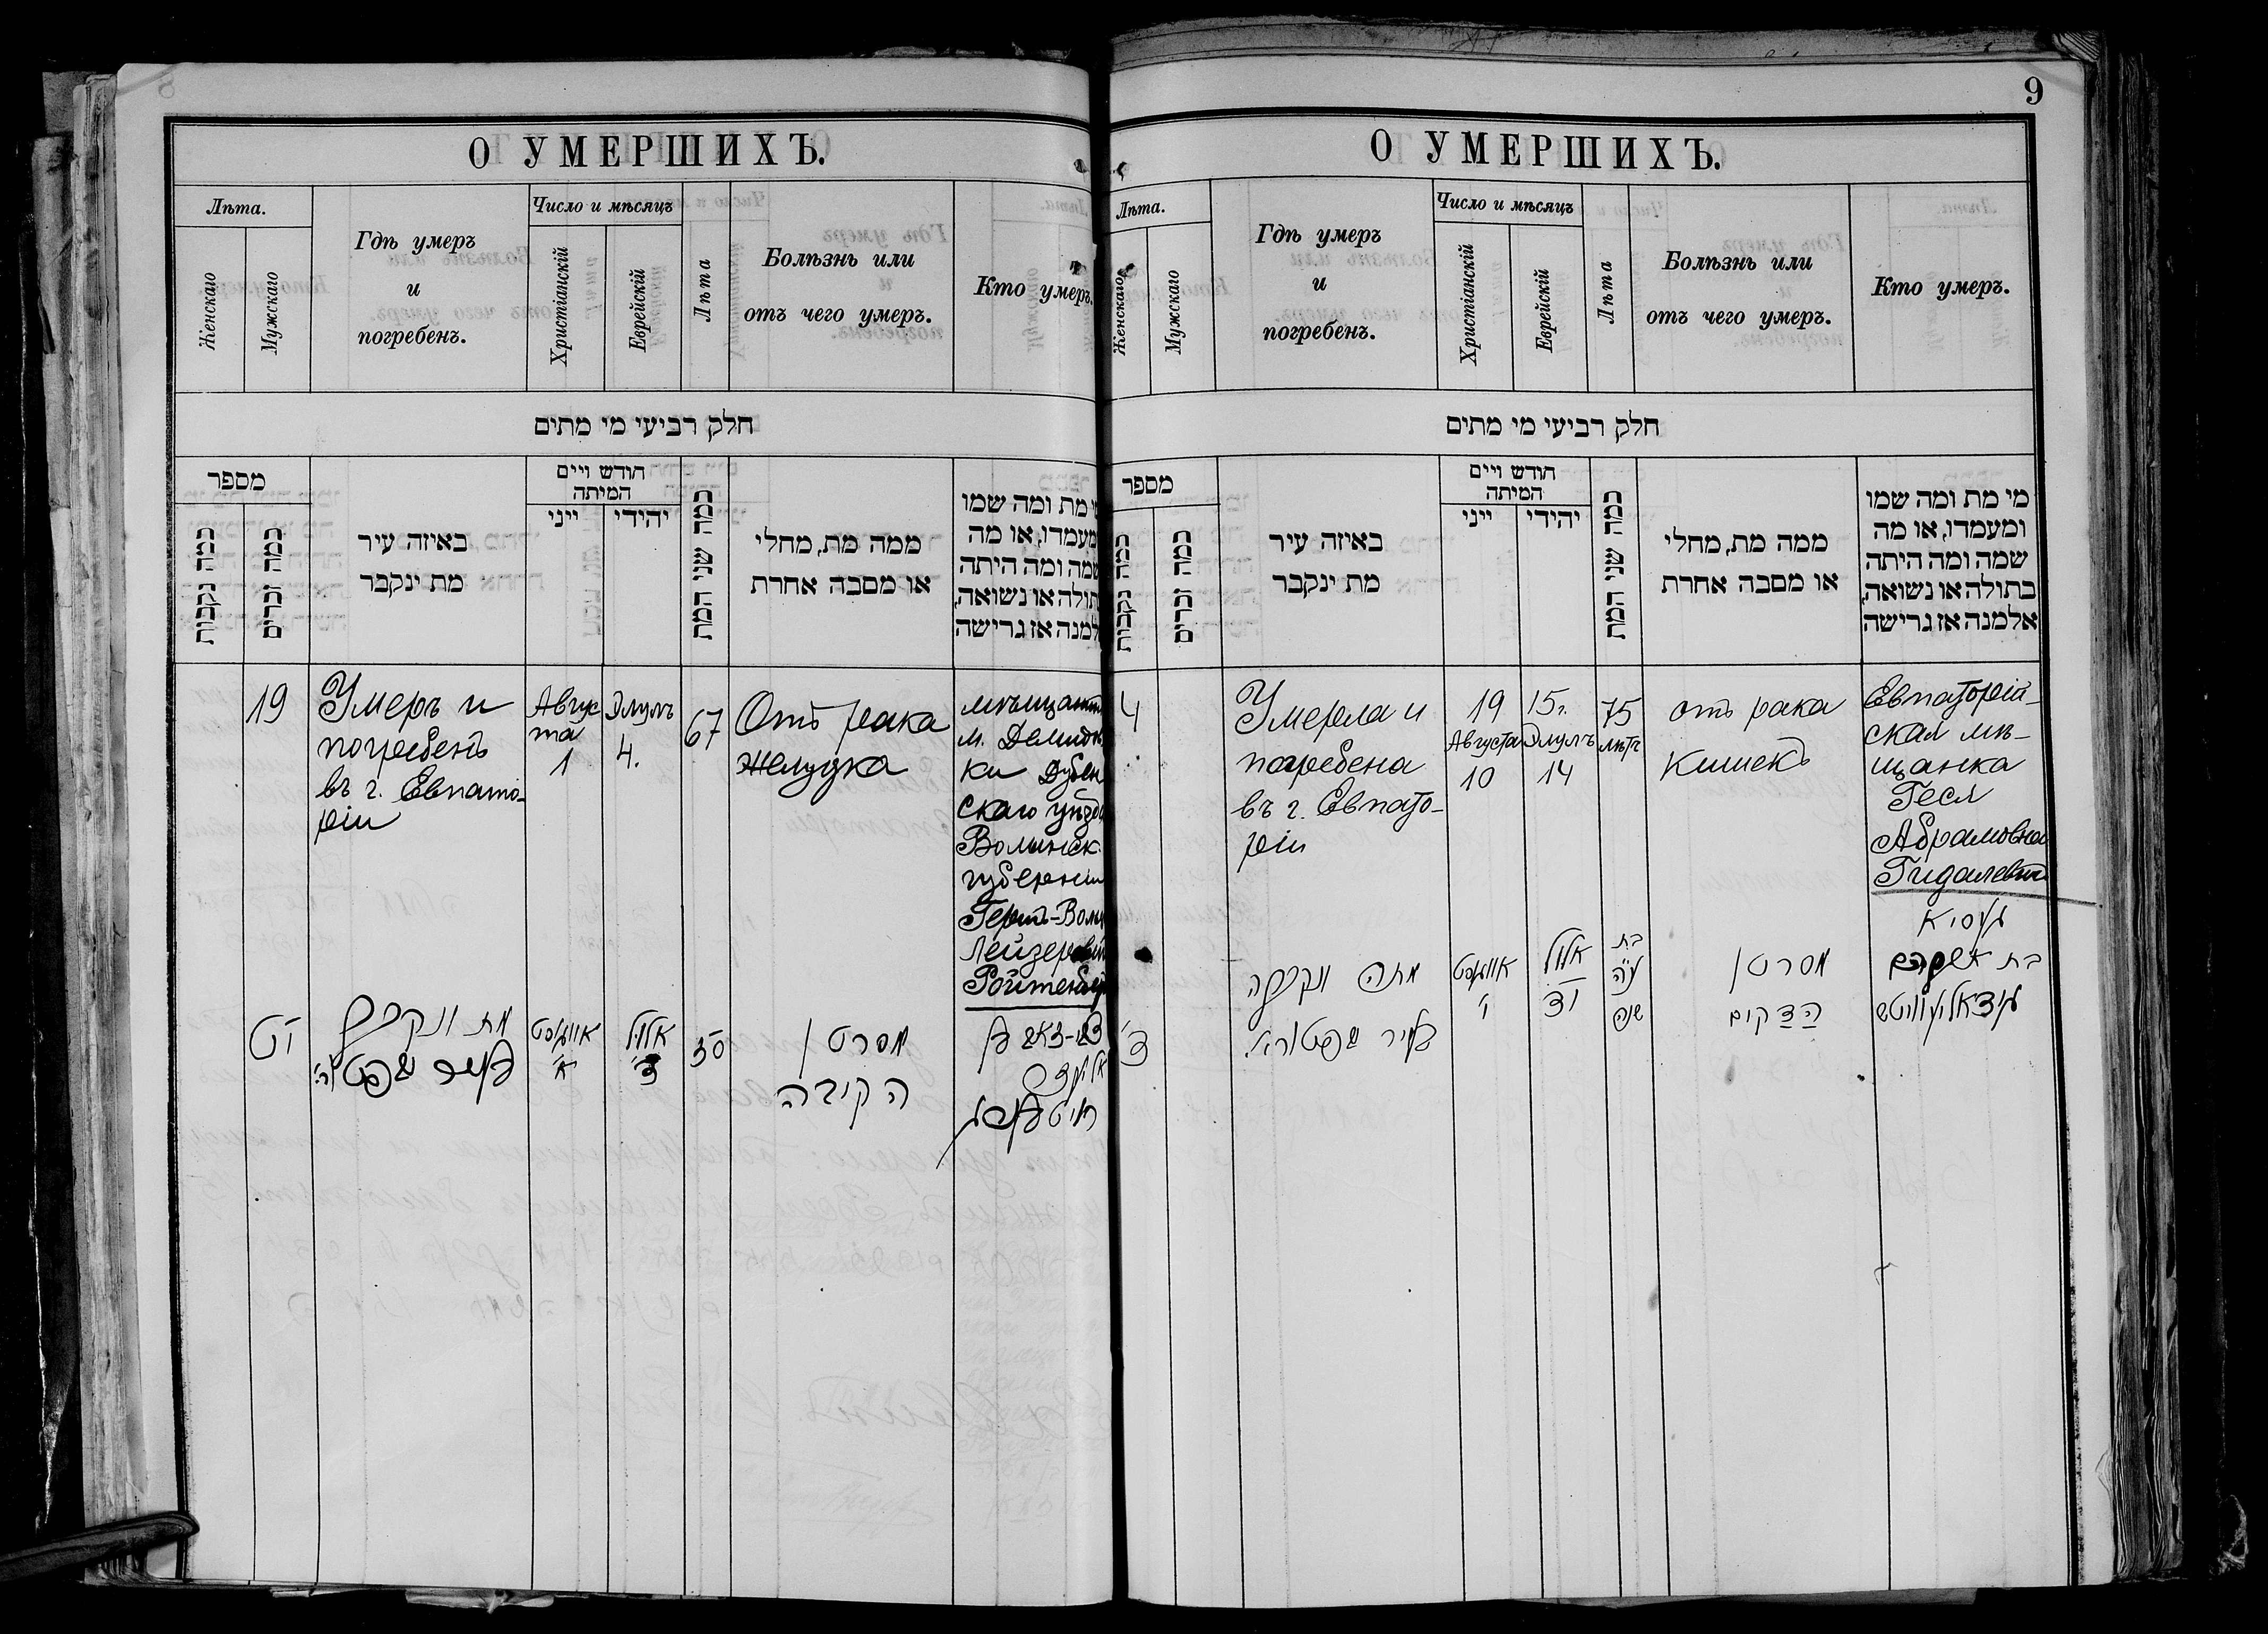 О УМЕРШИХЪ.
Лѣта.
Женскаго
Мужскаго
Гдѣ умеръ
и
погребенъ.
Число и мѣсяцъ
Христіанскій
Еврейскій
Лѣта
Болѣзнь или
отъ чего умеръ.
Кто умеръ.
חלק רביעי מי מתים
מספר
כמה נקבות
כמה זכרים
באיזה עיר
מת ינקבר
חודש ויים
המיתה
ייני
יהודי
כמה שני המת
ממה מת, מחלי
או מסבה אחרת
מת ומה שמו
מעמדו, או מה
שמה ומה היתה
תולה או נשואה,
למנה אז גרישה
19
Умеръ и
погребенъ
въ г. Евпато-
ріи
Авгус
та
1
Элулъ
4.
67
Отъ рака
желудка
мѣщанин
м. Демидов
ки Дубен
скаго уѣзда
Волынск.
губерніи
Герш-Вольф
Лейзерович
Ройтенберг
יט
מת ונקבר
בעיר
אווגוסט
א'
אלול
ד'
סז
מסרטן
הקיבה
9
О УМЕРШИХЪ.
Лѣта.
Женскаго
Мужскаго
Гдѣ умеръ
и
погребенъ.
Число и мѣсяцъ
Христіанскій
Еврейскій
Лѣта
Болѣзнь или
отъ чего умеръ.
Кто умеръ.
חלק רביעי מי מתים
מספר
כמה נקבות
כמה זכרים
באיזה עיר
מת ינקבר
חודש ויים
המיתה
ייני
יהודי
כמה שני המת
ממה מת, מחלי
או מסבה אחרת
מי מת ומה שמו
ומעמדו, או מה
שמה ומה היתה
בתולה או נשואה,
אלמנה אז גרישה
4
Умерла и
погребена
въ г. Евпато-
ріи
19
Августа
10
15.
Элулъ
14
75
лѣтъ
отъ рака
кишекъ
Евпаторій-
ская мѣ-
щанка
Геся
Абрамовна
Гидалевич
ד'
מתה ונקברה
בעיר
אווגוסט
י'
אלול
יד
בת
ע"ה
שנה
מסרטן
הדקים
געסיא
בת אברהם
גידאליעוויטש